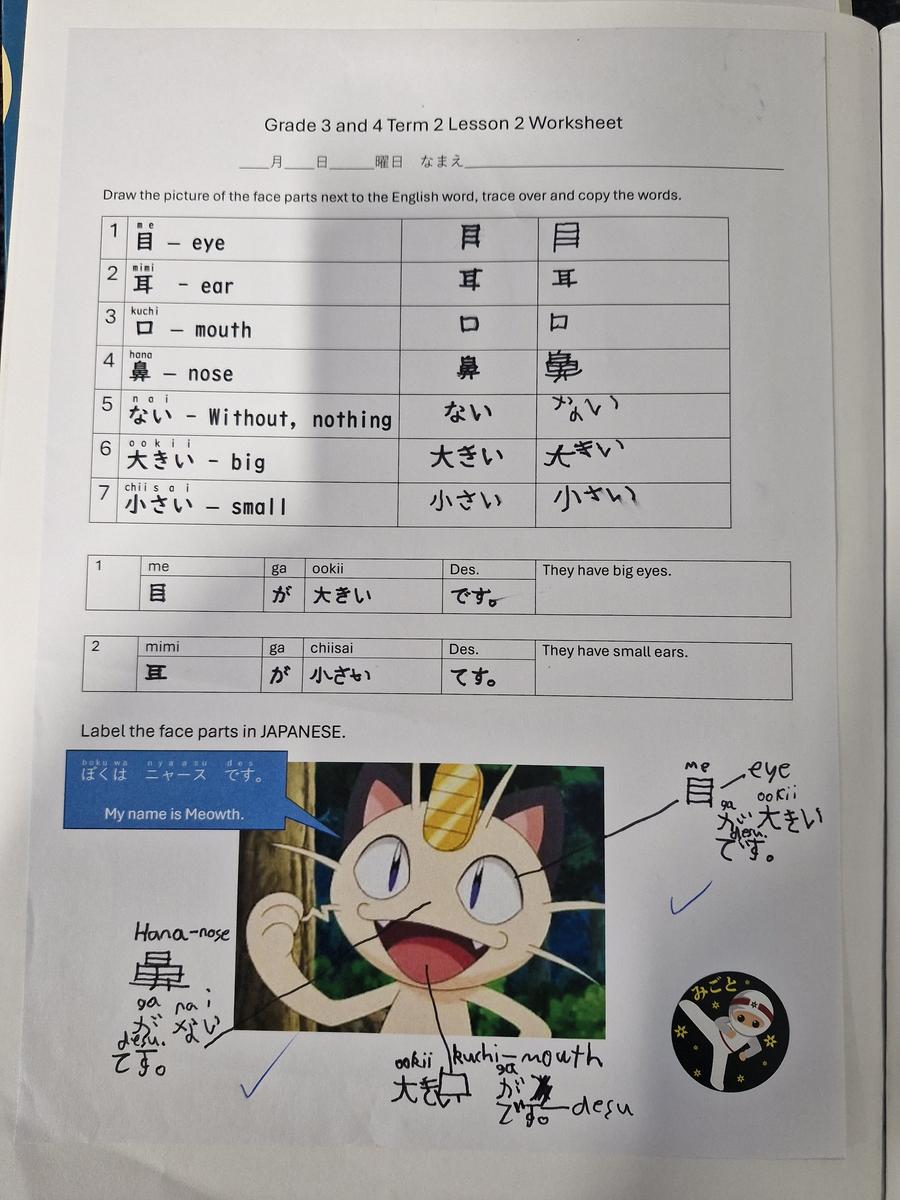 Grade 3 and 4 Term 2 Lesson 2 Worksheet
____月____日______曜日 なまえ
Draw the picture of the face parts next to the English word, trace over and copy the words.
1 me
目 – eye 目 目
2 mimi
耳 – ear 耳 耳
3 kuchi
口 – mouth 口 口
4 hana
鼻 – nose 鼻 鼻
5 nai
ない – Without, nothing ない ない
6 ookii
大きい – big 大きい 大きい
7 chiisai
小さい – small 小さい 小さい
1 me ga ookii Des. They have big eyes.
目 が 大きい です。
2 mimi ga chiisai Des. They have small ears.
耳 が 小さい てす。
Label the face parts in JAPANESE.
boku wa nyaasu des
ぼくは ニャース です。
My name is Meowth.
me
目 eye
ga ookii
が 大きい
desu.
です。
Hana-nose
鼻
ga nai
が ない
desu.
てす。
ookii kuchi-mouth
大きい 口
ga
が
です。 desu
みごと